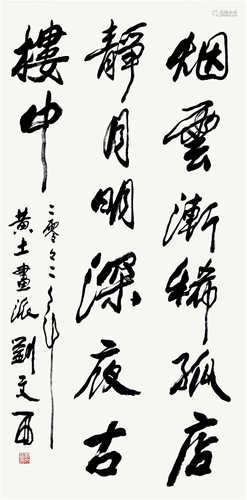 烟雲漸稀孤店
靜月明深夜古
樓中
二零零二年
黄土畫派劉文西